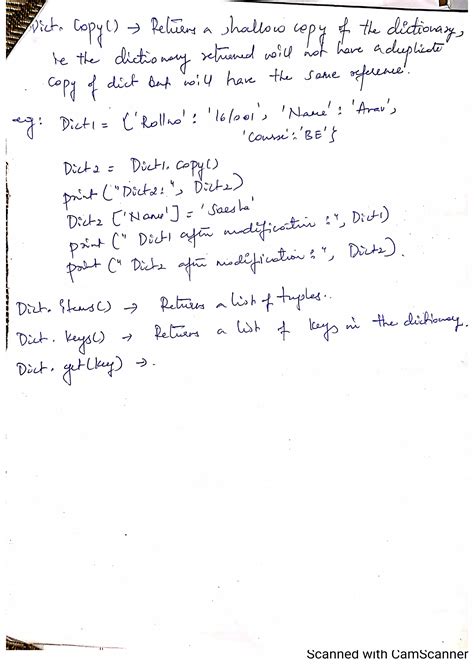 Dict. Copy() → Returns a shallow copy of the dictionary,
ie the dictionary returned will not have a duplicate
copy of dict but will have the same reference.
eg: Dict1 = {'Rollno' : '16/001', 'Name' : 'Arav',
'Course' : 'BE'}
Dict2 = Dict1. Copy()
print ("Dict2: ", Dict2)
Dict2 ['Name'] = 'Saesha'
print (" Dict1 after modification : ", Dict1)
print (" Dict2 after modification : ", Dict2).
Dict. items() → Returns a list of tuples.
Dict. keys() → Returns a list of keys in the dictionary.
Dict. get(key) → .
Scanned with CamScanner